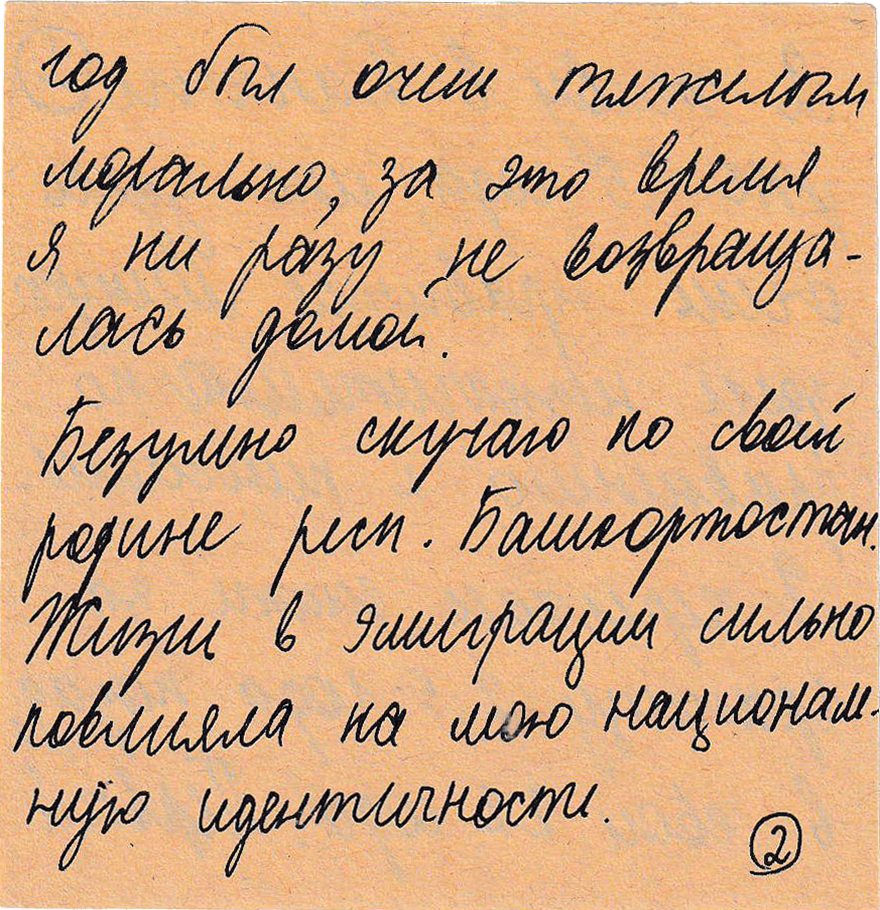 год был очень тяжелым
морально, за это время
я ни разу не возвраща-
лась домой.
Безумно скучаю по своей
родине респ. Башкортостан.
Жизнь в эмиграции сильно
повлияла на мою националь-
ную идентичность.
2